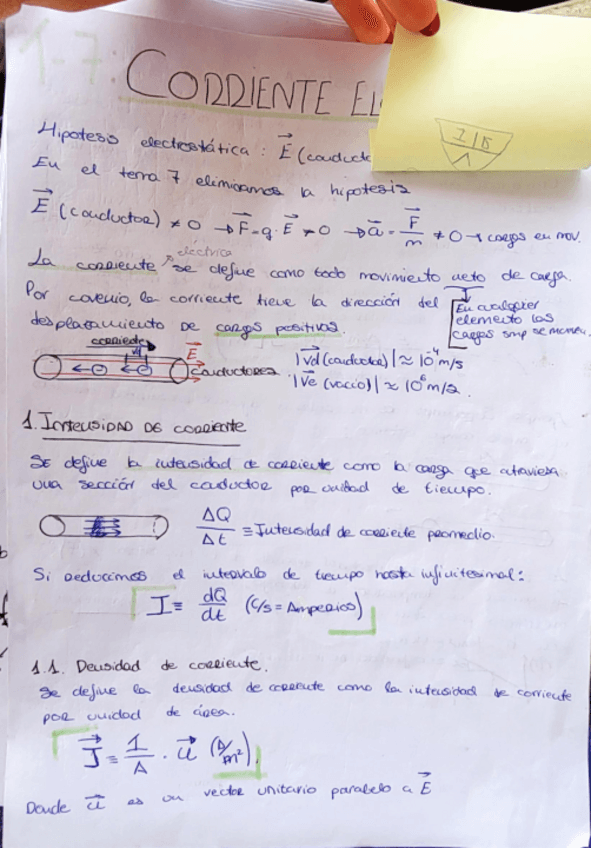 1-7: CORRIENTE EL
Hipotesis electrostática : E⃗ (conducto
1/15
1
En el tema 7 eliminamos la hipotesis
E⃗ (conductor) ≠ 0 → F⃗ = q · E⃗ ≠ 0 → a⃗ = F⃗/m ≠ 0 → cargas en mov.
La corriente eléctrica se define como todo movimiento neto de carga.
Por covenio, la corriente tieve la dirección del
desplazamiento de cargas positivas.
En cualquier
elemento las
cargas smp se mueven.
corriente
E⃗
Conductores
|v⃗d (conductor)| ≈ 10⁻⁴ m/s
|v⃗e (vacío)| ≈ 10⁶ m/s.
1. INTENSIDAD DE CORRIENTE
Se define la intensidad de corriente como la carga que atraviesa
una sección del conductor por unidad de tiempo.
ΔQ/Δt ≡ Intensidad de corriente promedio.
Si reducimos el intervalo de tiempo hasta infinitesimal:
I ≡ dQ/dt (C/s = Amperios)
1.1. Densidad de corriente.
Se define la densidad de corriente como la intensidad de corriente
por unidad de área.
J⃗ ≡ 1/A · u⃗ (A/m²).
Donde u⃗ es un vector unitario paralelo a E⃗